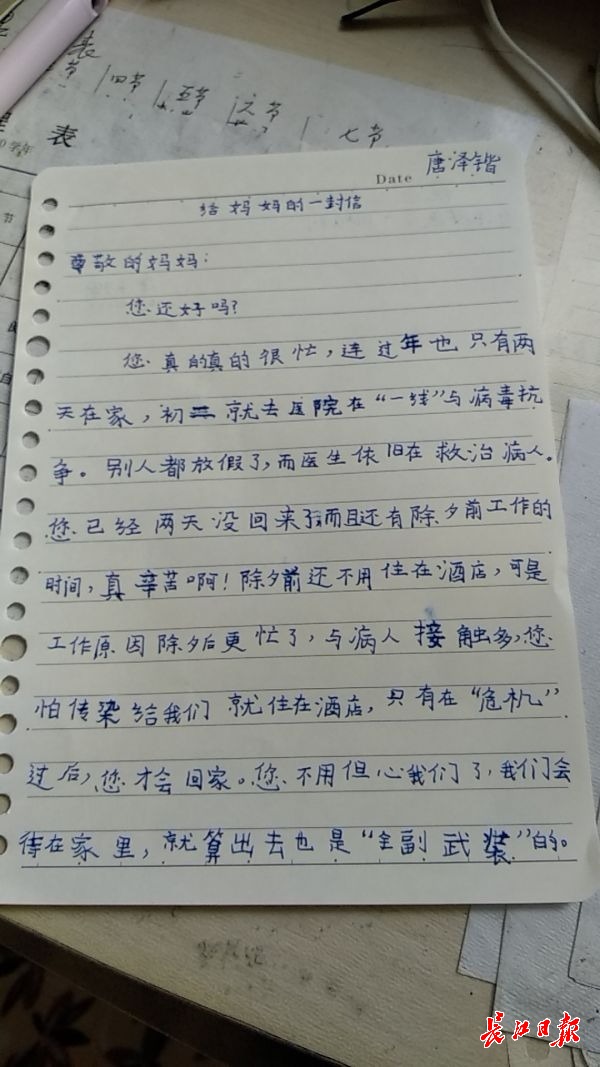 表
节 四节 五节 六节 七节
表
学年
节
Date 唐泽锴
给妈妈的一封信
尊敬的妈妈:
您还好吗?
您真的真的很忙,连过年也只有两
天在家,初二就去医院在“一线”与病毒抗
争。别人都放假了,而医生依旧在救治病人。
您已经两天没回来了而且还有除夕前工作的
时间,真辛苦啊!除夕前还不用住在酒店,可是
工作原因除夕后更忙了,与病人接触多,您
怕传染给我们就住在酒店,只有在“危机”
过后,您才会回家。您不用但心我们了,我们会
待在家里,就算出去也是“全副武装”的。
长江日报